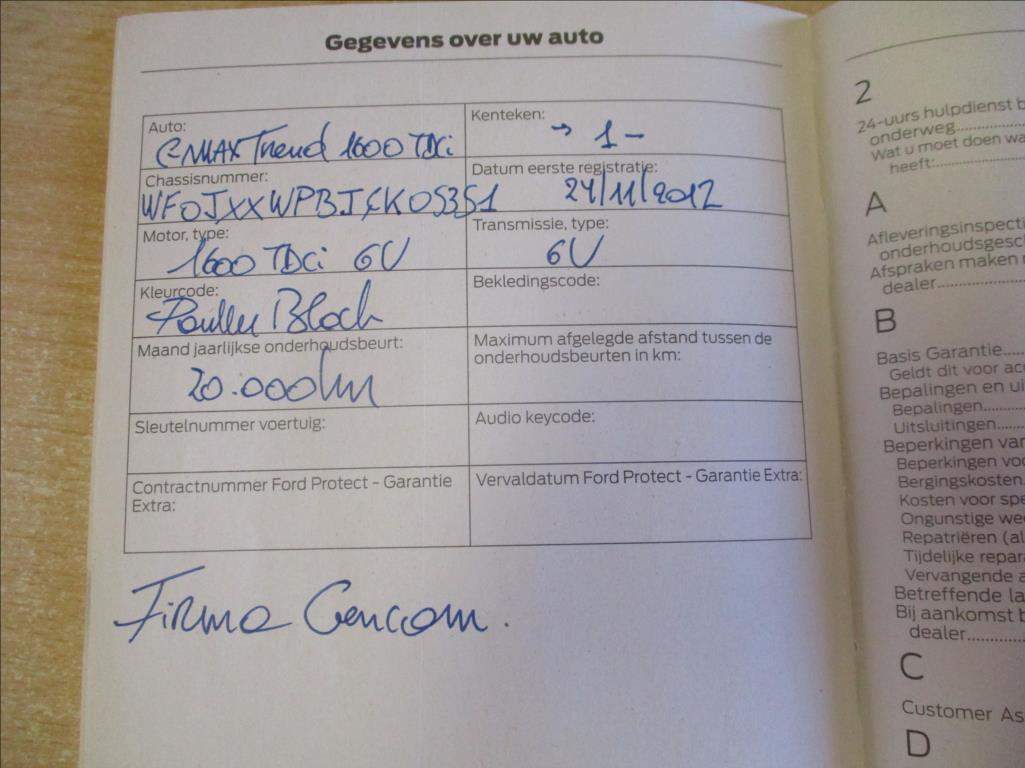 Gegevens over uw auto
Auto:
C-MAX Trend 1600 TDCi
Kenteken:
→ 1 -
Chassisnummer:
Datum eerste registratie:
24/11/2012
Motor, type:
1600 TDCi 6V
Transmissie, type:
6V
Kleurcode:
Bekledingscode:
Maand jaarlijkse onderhoudsbeurt:
20.000km
Maximum afgelegde afstand tussen de
onderhoudsbeurten in km:
Sleutelnummer voertuig:
Audio keycode:
Contractnummer Ford Protect - Garantie
Extra:
Vervaldatum Ford Protect - Garantie Extra:
Firma Cencom.
2
24-uurs hulpdienst
onderweg..........
Wat u moet doen
heeft:..........
A
onderhoudsgesc
Afspraken maken
dealer..........
B
Basis Garantie....
Geldt dit voor
Bepalingen en
Bepalingen.......
Uitsluitingen.......
Beperkingen
Beperkingen
Bergingskosten.
Kosten voor
Ongunstige
Repatriëren
Tijdelijke
Vervangende
Betreffende
Bij aankomst
dealer..........
C
Customer
D